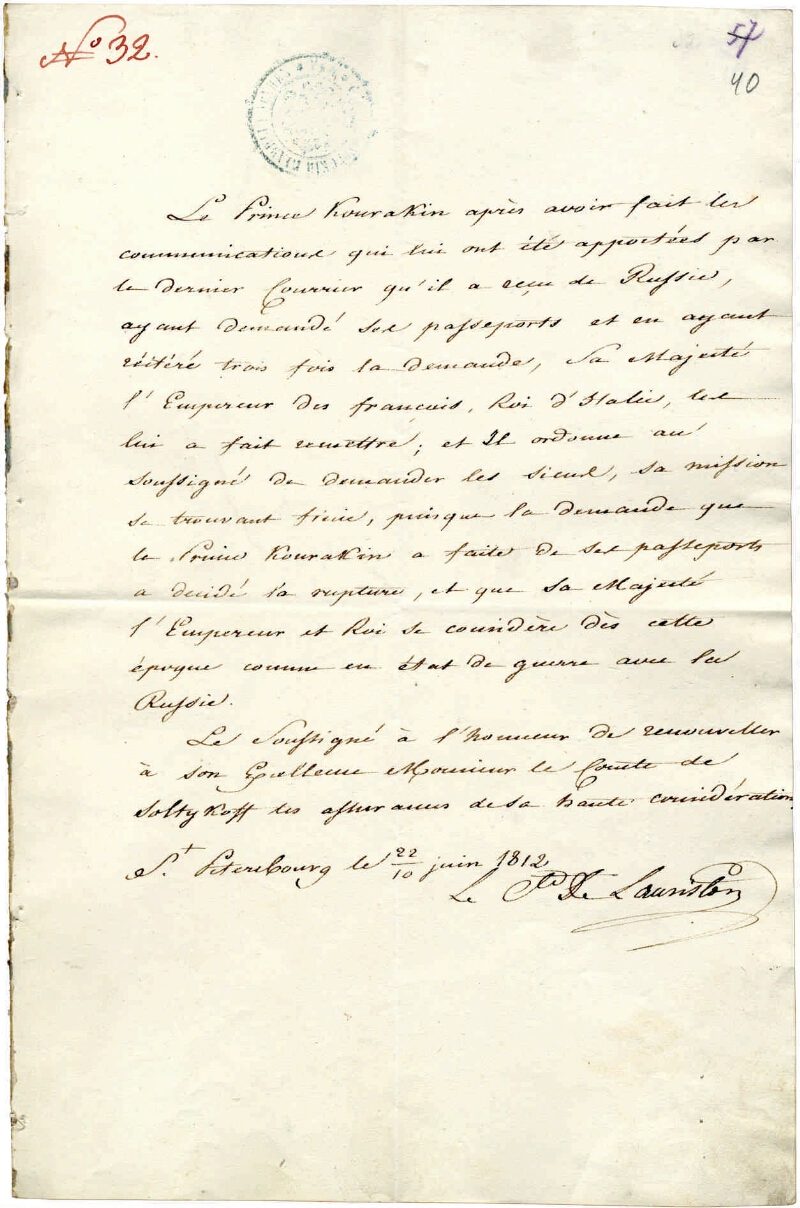 No 32.
57
40
Le Prince Kourakin après avoir fait les
communications qui lui ont été apportées par
le dernier Courrier qu'il a reçu de Russie,
ayant demandé ses passeports et en ayant
réitéré trois fois la demande, Sa Majesté
l'Empereur des francois, Roi d'Italie, les
lui a fait remettre; et Il ordonne au
soussigné de demander les siens, sa mission
se trouvant finie, puisque la demande que
le Prince Kourakin a faite de ses passeports
a décidé la rupture, et que Sa Majesté
l'Empereur et Roi se considère dès cette
époque comme en état de guerre avec la
Russie.
Le Soussigné à l'honneur de renouveller
à son Excellence Monsieur le Comte de
Soltykoff les assurances de sa haute considération
St Petersbourg le 22/10 juin 1812
Le Cte De Lauriston